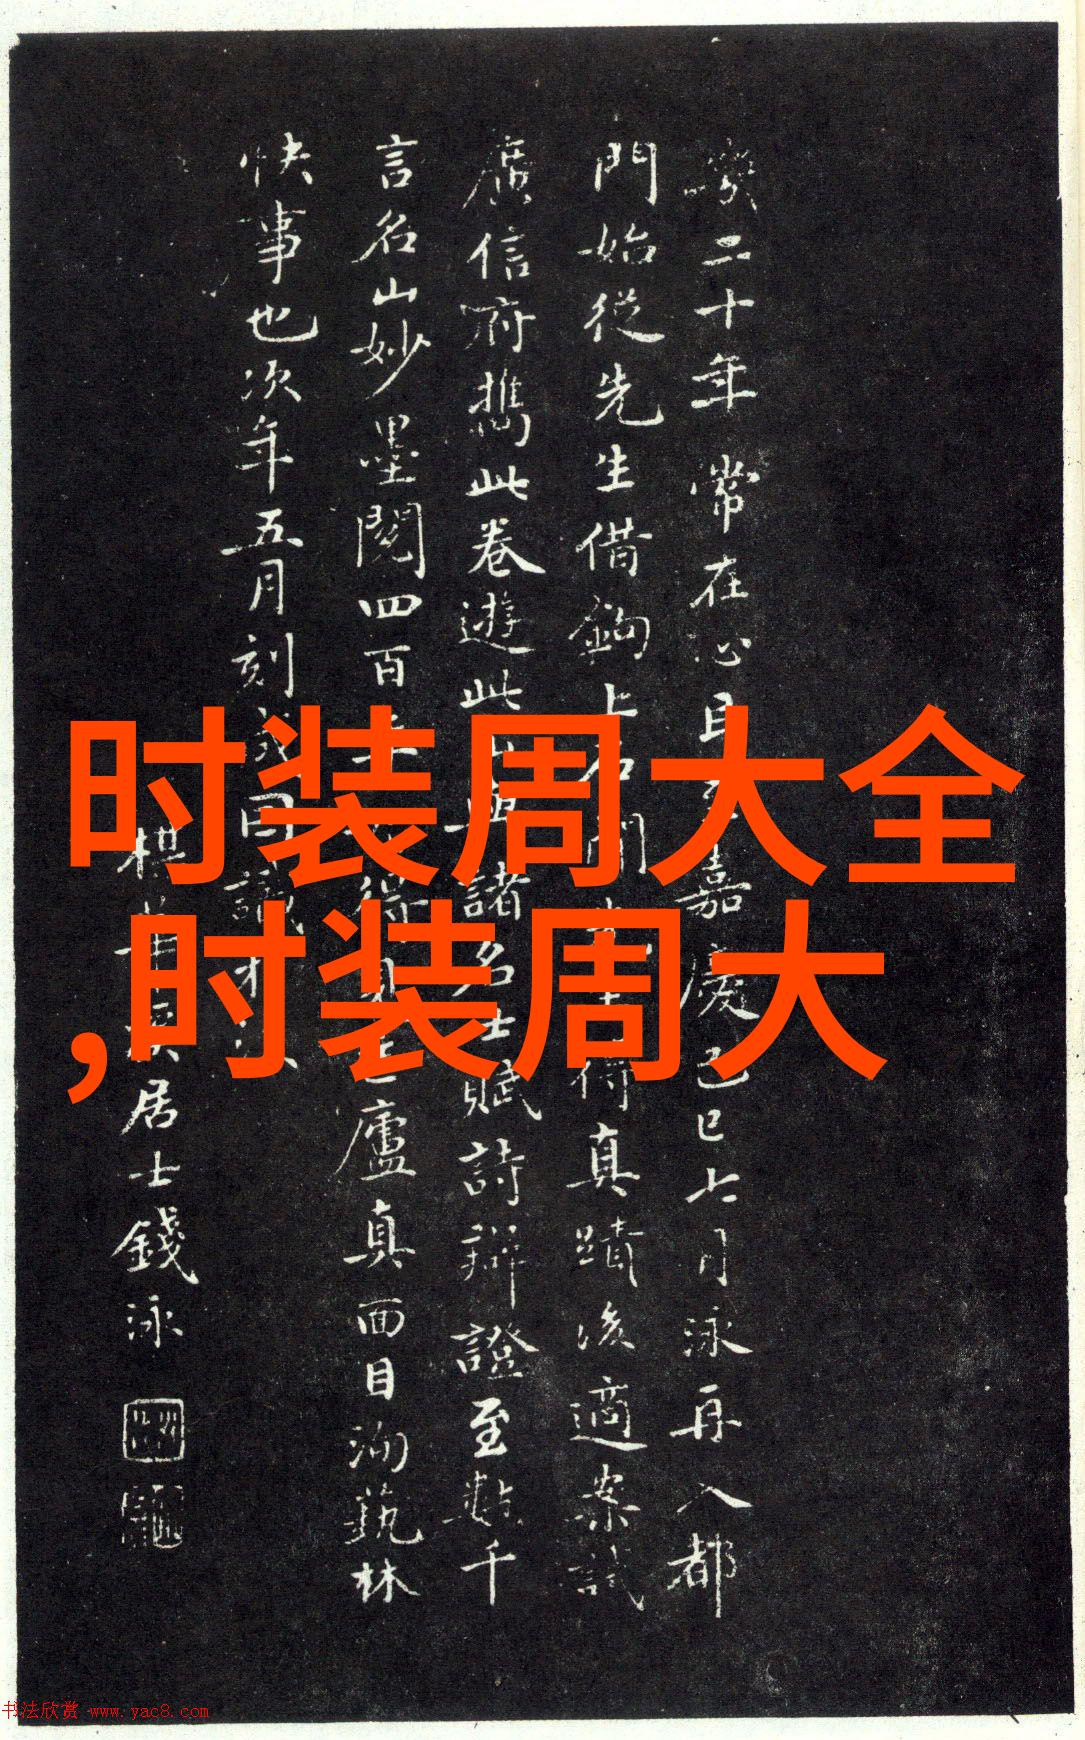 時装周大全
,时装周大
二十年常在心目 嘉慶己巳七月泳再入都
門始從先生借鉤上石 真蹟後適案試
廣信府攜此卷遊此 諸名士賦詩辯證至數千
言名山妙墨閱四百 廬真面目洵藝林
快事也次年五月刻成因識
居士錢泳
书法欣赏 www.yac8.com